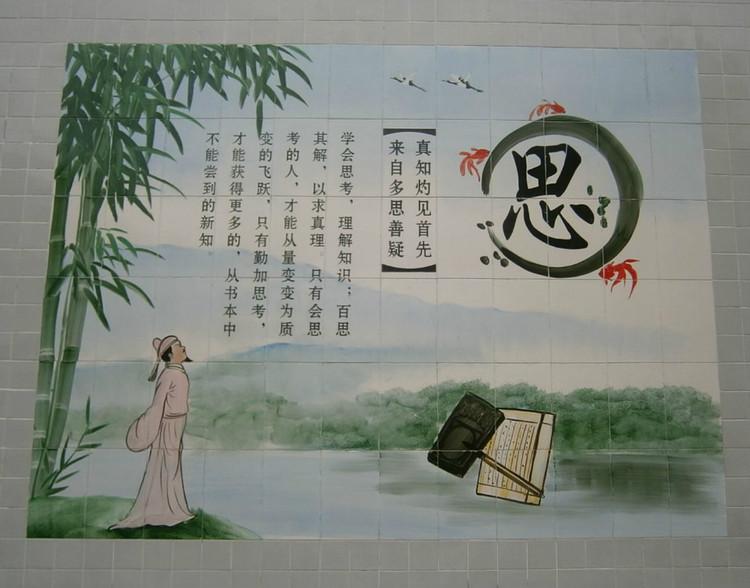 思
真知灼见首先
来自多思善疑
学会思考，理解知识；百思
其解，以求真理。只有会思
考的人，才能从量变变为质
变的飞跃，只有勤加思考，
才能获得更多的，从书本中
不能尝到的新知。